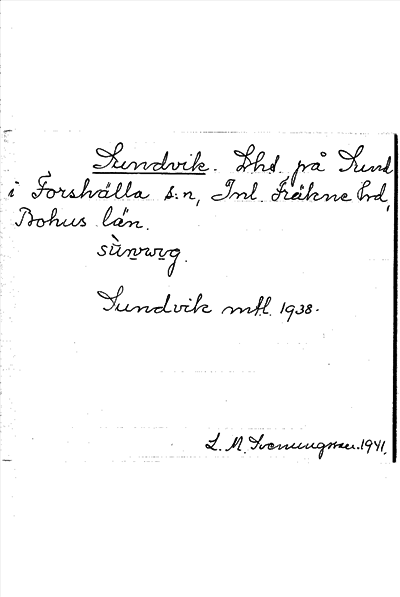 Sundvik. Lhd. på Sund
i Forshälla s:n, Inl. Fräkne hd,
Bohus län.
sùnvig.
Sundvik mtl. 1938.
L. M. Svenungsson. 1941.